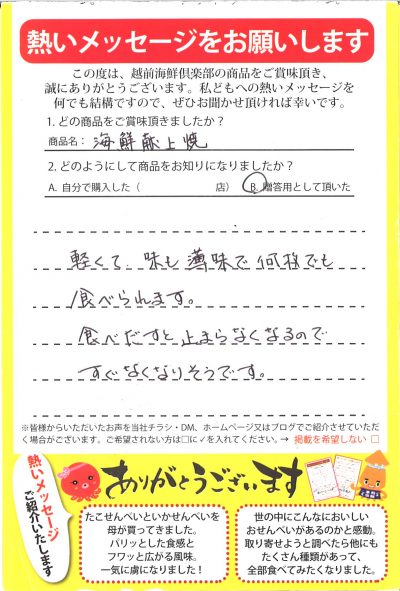 熱いメッセージをお願いします
この度は、越前海鮮倶楽部の商品をご賞味頂き、
誠にありがとうございます。私どもへの熱いメッセージを
何でも結構ですので、ぜひお聞かせ頂ければ幸いです。
1. どの商品をご賞味頂きましたか？
商品名： 海鮮献上焼
2. どのようにして商品をお知りになりましたか？
A. 自分で購入した（　　　　　　　店） B. 贈答用として頂いた
軽くて、味も薄味で何枚でも
食べられます。
食べだすと止まらなくなるので
すぐなくなりそうです。
※皆様からいただいたお声を当社チラシ・DM、ホームページ又はブログでご紹介させていただ
く場合がございます。ご希望されない方は□に✓を入れてください。→ 掲載を希望しない □
熱いメッセージ
ご紹介いたします
ありがとうございます
たこせんべいといかせんべいを
母が買ってきました。
パリッとした食感と
フワッと広がる風味。
一気に虜になりました！
世の中にこんなにおいしい
おせんべいがあるのかと感動。
取り寄せようと調べたら他にも
たくさん種類があって、
全部食べてみたくなりました。